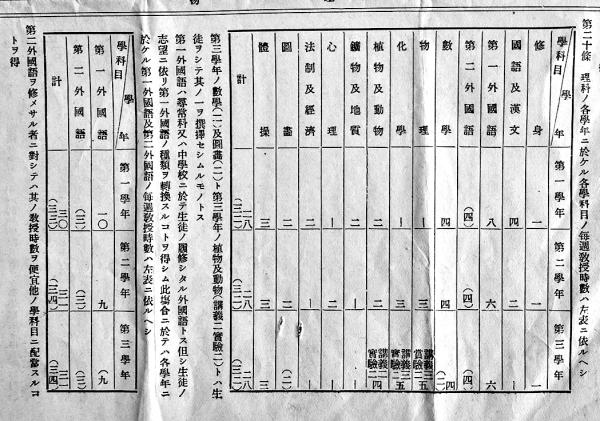 第二十條 理科ノ各學年ニ於ケル各學科目ノ每週敎授時數ハ左表ニ依ルヘシ
學科目 學年 第一學年 第二學年 第三學年
修身 一 一 一
國語及漢文 四 二 ー
第一外國語 八 六 六
第二外國語 (四) (四) (四)
數學 四 四 (二)四
物理 ー 三 講義三實驗二 五
化學 ー 三 講義三實驗二 五
植物及動物 二 ー 講義二實驗二 四
鑛物及地質 二 ー ー
心理 ー 二 ー
法制及經濟 二 ー ー
圖畫 二 二 (二)
體操 三 三 三
計 二八(三二) 二八(三二)
第三學年ノ數學(二)及圖畫(二)ト第三學年ノ植物及動物(講義二實驗二)トハ生
徒ヲシテ其ノ一ヲ撰擇セシムルモノトス
第一外國語ハ尋常科又ハ中學校ニ於テ生徒ノ履修シタル外國語トス但シ生徒ノ
志望ニ依リ第一外國語ノ種類ヲ轉換スルコトヲ得シム此塲合ニ於テハ各學年ニ
於ケル第一外國語及第二外國語ノ每週敎授時數ハ左表ニ依ルヘシ
學科目 學年 第一學年 第二學年 第三學年
第一外國語 一〇 九 (九
第二外國語 (三) (三) (三)
計 三〇(三三) 三一(三四) 三一(三四)
第二外國語ヲ修メサル者ニ對シテハ其ノ敎授時數ヲ便宜他ノ學科目ニ配當スルコ
トヲ得